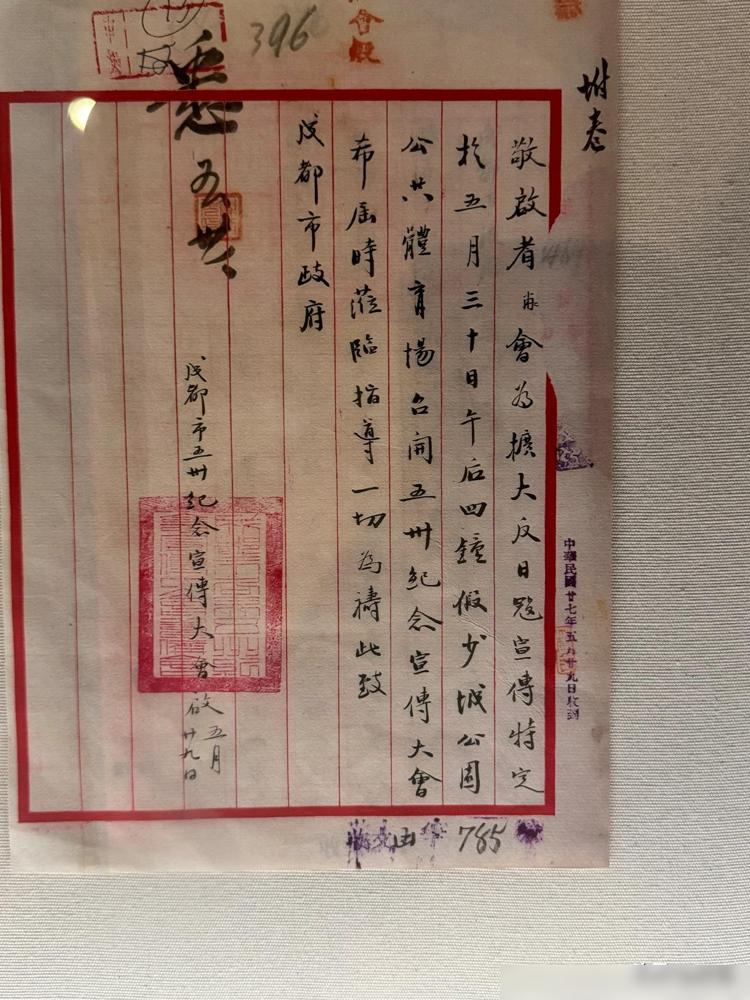 396
坿卷
敬啟者本會為擴大反日寇宣傳特定
於五月三十日午后四鐘假少城公園
公共體育場召開五卅紀念宣傳大會
希屆時蒞臨指導一切為禱此致
成都市政府
成都市五卅紀念宣傳大會啟
五月
廿九日
悉
五
卅
中華民國廿七年五月廿九日收到
785